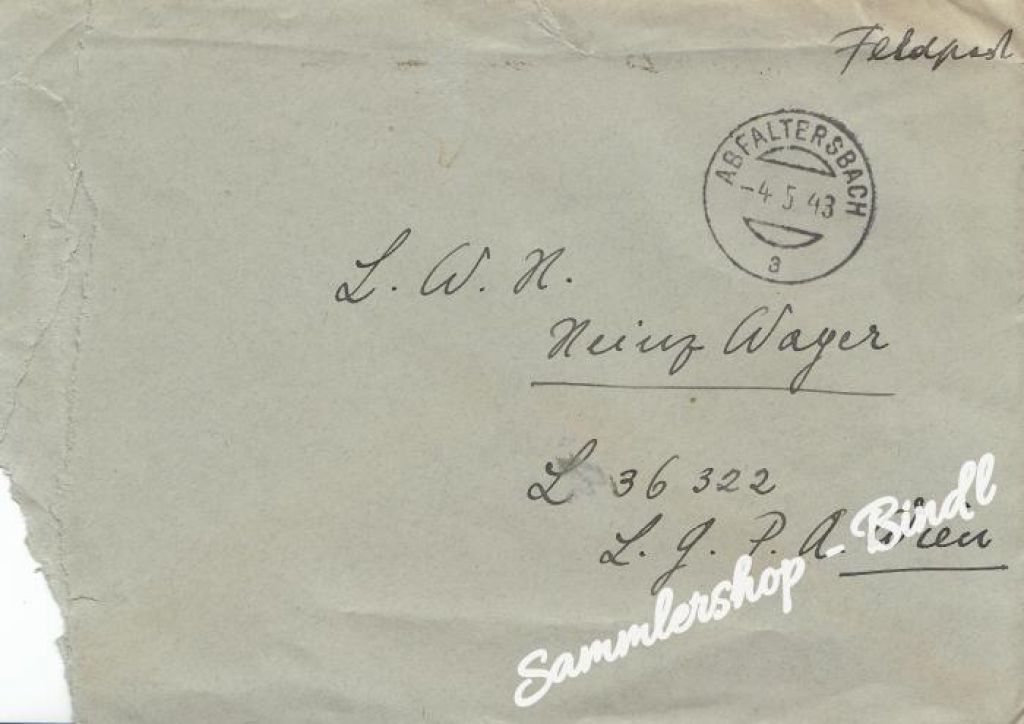 Feldpost
ABFALTERSBACH
-4.5.43
a
L. W. H.
Heinz Wager
L 36 322
L. G. P. A. Wien
Sammlershop - Bindl